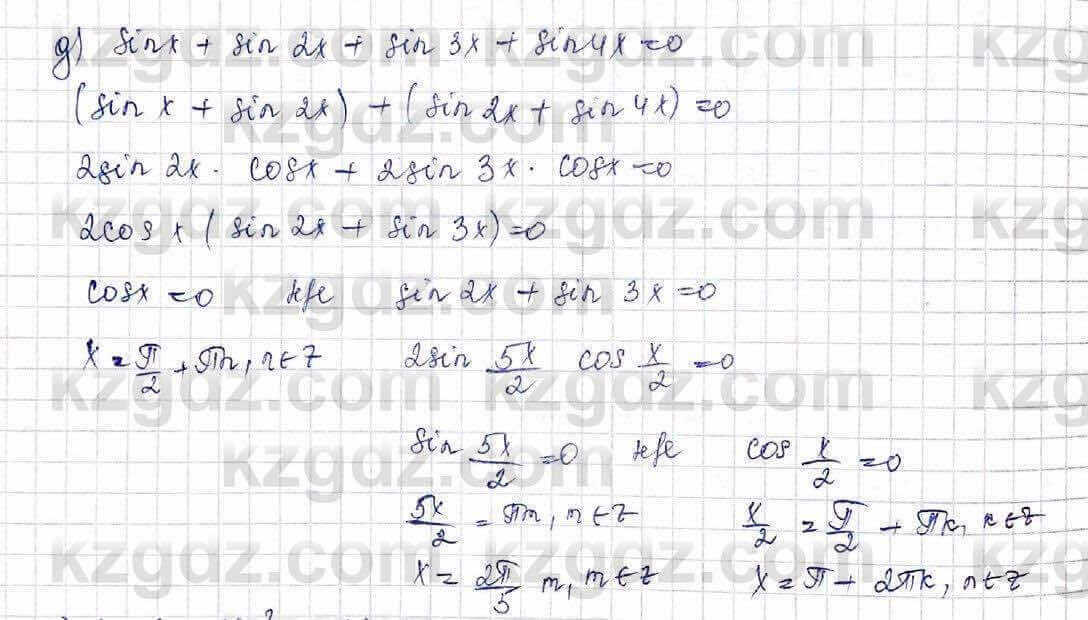 д) sin x + sin 2x + sin 3x + sin 4x = 0
(sin x + sin 2x) + (sin 2x + sin 4x) = 0
2sin 2x · cos x + 2sin 3x · cos x = 0
2cos x (sin 2x + sin 3x) = 0
cos x = 0 sin 2x + sin 3x = 0
x = π/2 + πn, n∈Z 2sin 5x/2 cos x/2 = 0
sin 5x/2 = 0 cos x/2 = 0
5x/2 = πn, n∈Z x/2 = π/2 + πk, k∈Z
x = 2π/5 m, m∈Z x = π + 2πk, n∈Z
kzgdz.com